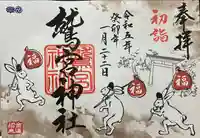 奉拝
初詣
令和五年
癸卯年
一月二十二日
鷲宮神社
福
福
福